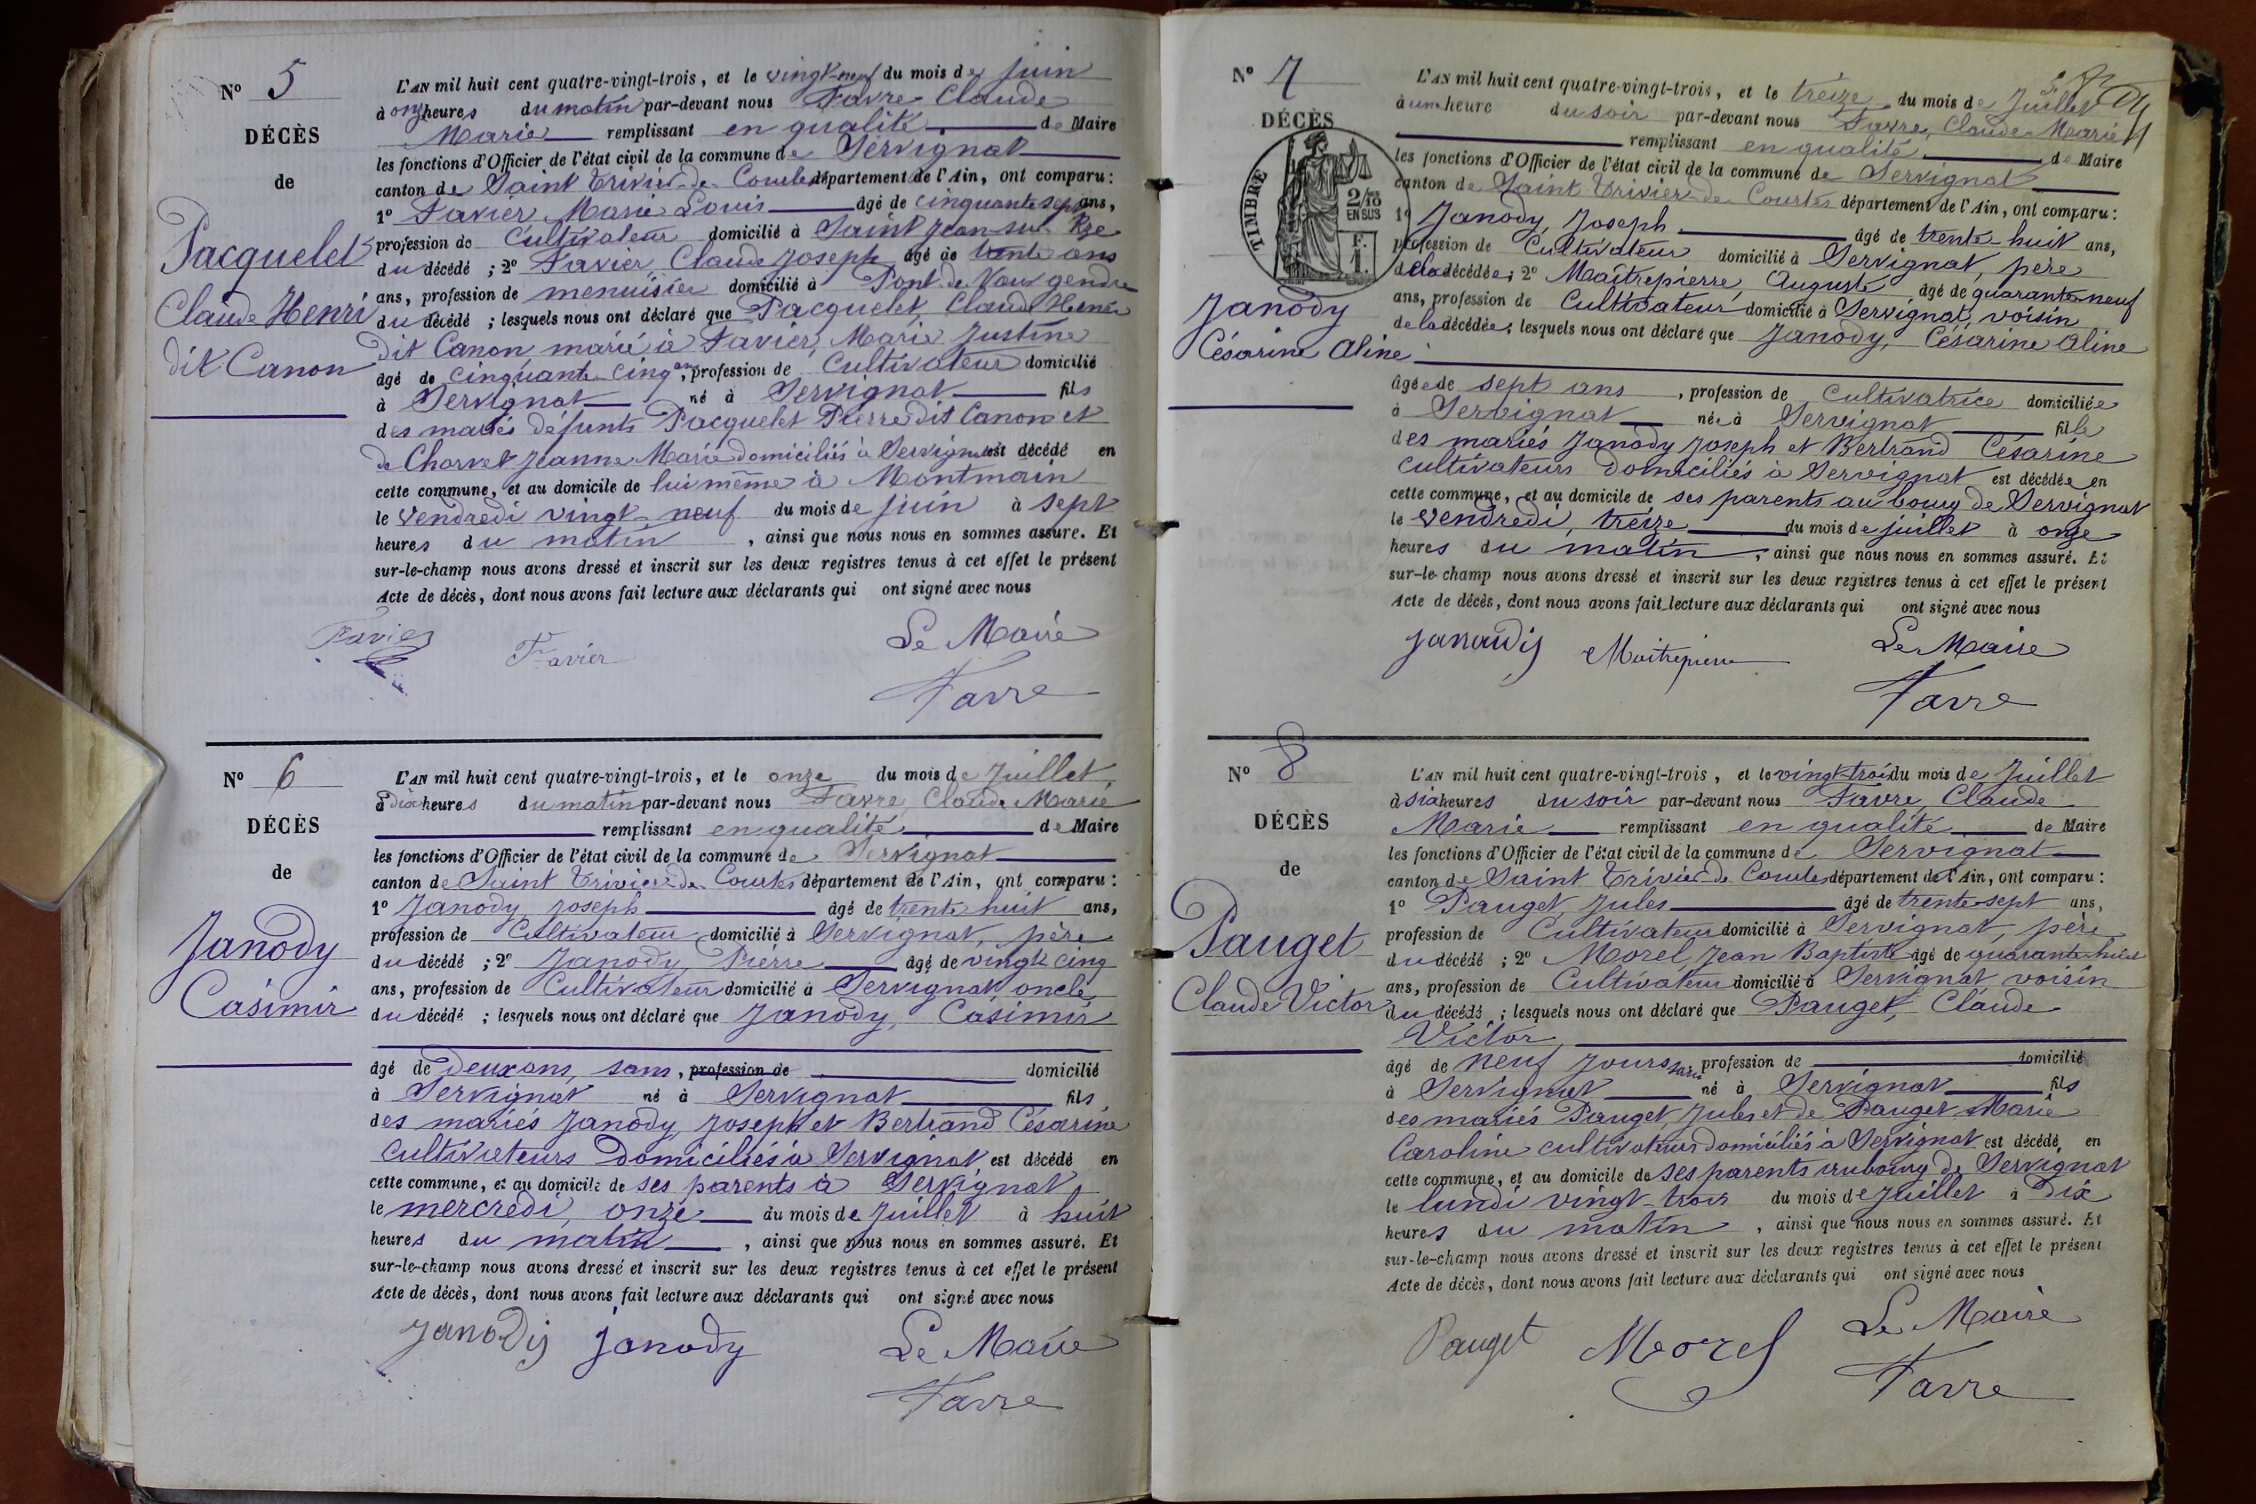 N° 5
DÉCÈS
de
Pacquelet
Claude Henri
dit Canon
L'AN mil huit cent quatre-vingt-trois, et le vingt-neuf du mois de juin
à onze heures du matin par-devant nous Favre Claude
Marie remplissant en qualité de Maire
les fonctions d'Officier de l'état civil de la commune de Servignat
canton de Saint Trivier-de-Courtes département de l'Ain, ont comparu :
1° Favier Marie Louis âgé de cinquante sept ans,
profession de Cultivateur domicilié à Saint Jean sur Rze
du décédé ; 2° Favier Claude Joseph âgé de trente ans
ans, profession de menuisier domicilié à Pont de Vaux gendre
du décédé ; lesquels nous ont déclaré que Pacquelet, Claude Henri
dit Canon marié à Favier, Marie Justine
âgé de cinquante-cinq ans, profession de Cultivateur domicilié
à Servignat né à Servignat fils
des mariés défunts Pacquelet Pierre dit Canon et
de Charvet Jeanne Marie domiciliés à Servignat est décédé en
cette commune, et au domicile de lui même à Montmain
le vendredi vingt-neuf du mois de juin à sept
heures du matin, ainsi que nous nous en sommes assuré. Et
sur-le-champ nous avons dressé et inscrit sur les deux registres tenus à cet effet le présent
Acte de décès, dont nous avons fait lecture aux déclarants qui ont signé avec nous
Favier Favier Le Maire
Favre
N° 6
DÉCÈS
de
Janody
Casimir
L'AN mil huit cent quatre-vingt-trois, et le onze du mois de Juillet
à dix heures du matin par-devant nous Favre, Claude Marie
remplissant en qualité de Maire
les fonctions d'Officier de l'état civil de la commune de Servignat
canton de Saint Trivier-de-Courtes département de l'Ain, ont comparu :
1° Janody Joseph âgé de trente huit ans,
profession de Cultivateur domicilié à Servignat, père
du décédé ; 2° Janody Pierre âgé de vingt cinq
ans, profession de Cultivateur domicilié à Servignat, oncle
du décédé ; lesquels nous ont déclaré que Janody, Casimir
âgé de deux ans, sans, profession de domicilié
à Servignat né à Servignat fils
des mariés Janody Joseph et Bertrand Césarine
Cultivateurs domiciliés à Servignat est décédé en
cette commune, et au domicile de ses parents à Servignat
le mercredi, onze du mois de Juillet à huit
heures du matin, ainsi que nous nous en sommes assuré. Et
sur-le-champ nous avons dressé et inscrit sur les deux registres tenus à cet effet le présent
Acte de décès, dont nous avons fait lecture aux déclarants qui ont signé avec nous
Janody Janody Le Maire
Favre
N° 7
DÉCÈS
TIMBRE
2/10
EN SUS
F.
1.
Janody
Césarine Aline
L'AN mil huit cent quatre-vingt-trois, et le treize du mois de Juillet
à une heure du soir par-devant nous Favre, Claude Marie
remplissant en qualité de Maire
les fonctions d'Officier de l'état civil de la commune de Servignat
canton de Saint Trivier-de-Courtes département de l'Ain, ont comparu :
1° Janody, Joseph âgé de trente-huit ans,
profession de Cultivateur domicilié à Servignat, père
de la décédée ; 2° Maîtrepierre, Auguste âgé de quarante-neuf
ans, profession de Cultivateur domicilié à Servignat, voisin
de la décédée ; lesquels nous ont déclaré que Janody, Césarine Aline
âgée de sept ans, profession de cultivatrice domiciliée
à Servignat née à Servignat fille
des mariés Janody Joseph et Bertrand Césarine
cultivateurs domiciliés à Servignat est décédée en
cette commune, et au domicile de ses parents au bourg de Servignat
le vendredi, treize du mois de juillet à onze
heures du matin, ainsi que nous nous en sommes assuré. Et
sur-le-champ nous avons dressé et inscrit sur les deux registres tenus à cet effet le présent
Acte de décès, dont nous avons fait lecture aux déclarants qui ont signé avec nous
Janaudy Maitrepierre Le Maire
Favre
N° 8
DÉCÈS
de
Pauget
Claude Victor
L'AN mil huit cent quatre-vingt-trois, et le vingt-trois du mois de Juillet
à six heures du soir par-devant nous Favre, Claude
Marie remplissant en qualité de Maire
les fonctions d'Officier de l'état civil de la commune de Servignat
canton de Saint Trivier-de-Courtes département de l'Ain, ont comparu :
1° Pauget, Jules âgé de trente-sept ans,
profession de Cultivateur domicilié à Servignat, père
du décédé ; 2° Morel, Jean Baptiste âgé de quarante-huit
ans, profession de Cultivateur domicilié à Servignat voisin
du décédé ; lesquels nous ont déclaré que Pauget, Claude
Victor
âgé de neuf jours sans profession de domicilié
à Servignat né à Servignat fils
des mariés Pauget, Jules et de Pauget Marie
Caroline cultivateurs domiciliés à Servignat est décédé en
cette commune, et au domicile de ses parents au bourg de Servignat
le lundi vingt-trois du mois de Juillet à dix
heures du matin, ainsi que nous nous en sommes assuré. Et
sur-le-champ nous avons dressé et inscrit sur les deux registres tenus à cet effet le présent
Acte de décès, dont nous avons fait lecture aux déclarants qui ont signé avec nous
Pauget Morel Le Maire
Favre